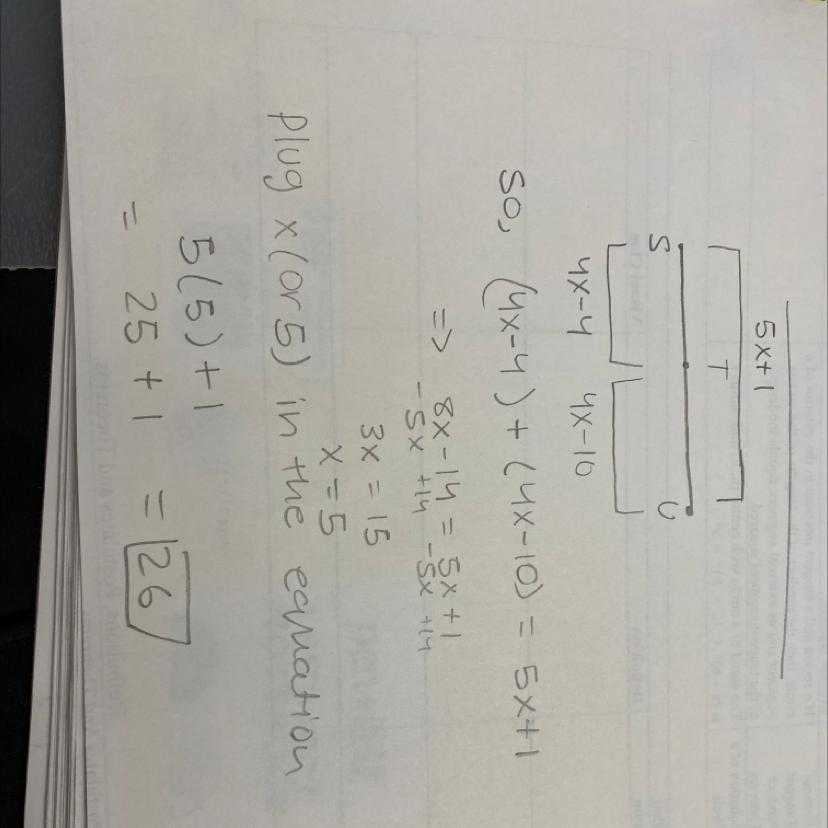 5x+1
T
S U
4x-4 4x-10
So, (4x-4)+(4x-10) = 5x+1
=> 8x-14 = 5x+1
-5x +14 -5x +14
3x = 15
x = 5
plug x(or 5) in the equation
5(5)+1
= 25 + 1 = 26